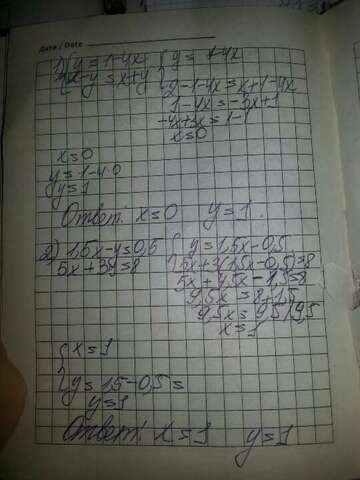 Дата / Date
1) { y = 1-4x { y = 1-4x
1-4x = -3x+1
-4x+3x = 1-1
x=0
x=0
y=1-4·0
y=1
Ответ: x=0 y=1.
2) 1,5x-y=0,5 { y=1,5x-0,5
5x+3y=8 5x+3(1,5x-0,5)=8
5x+4,5x-1,5=8
9,5x=8+1,5
9,5x=9,5|9,5
x=1
{ x=1
y=1,5-0,5=
y=1
Ответ: x=1 y=1